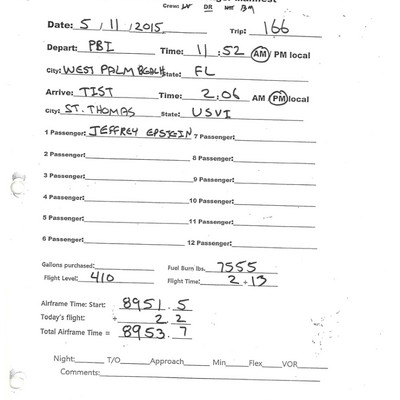 Crew: DR
Date: 5 / 11 / 2015 Trip: 166
Depart: PBI Time: 11 : 52 AM / PM local
City: WEST PALM BEACH State: FL
Arrive: TIST Time: 2:06 AM PM local
City: ST. THOMAS State: USVI
1 Passenger: JEFFREY EPSTEIN 7 Passenger:
2 Passenger: 8 Passenger:
3 Passenger: 9 Passenger:
4 Passenger: 10 Passenger:
5 Passenger: 11 Passenger:
6 Passenger: 12 Passenger:
Gallons purchased: Fuel Burn lbs. 7555
Flight Level: 410 Flight Time: 2 + 13
Airframe Time: Start: 8951 . 5
Today's flight: + 2 . 2
Total Airframe Time = 8953 . 7
Night: T/O Approach Min Flex VOR
Comments: